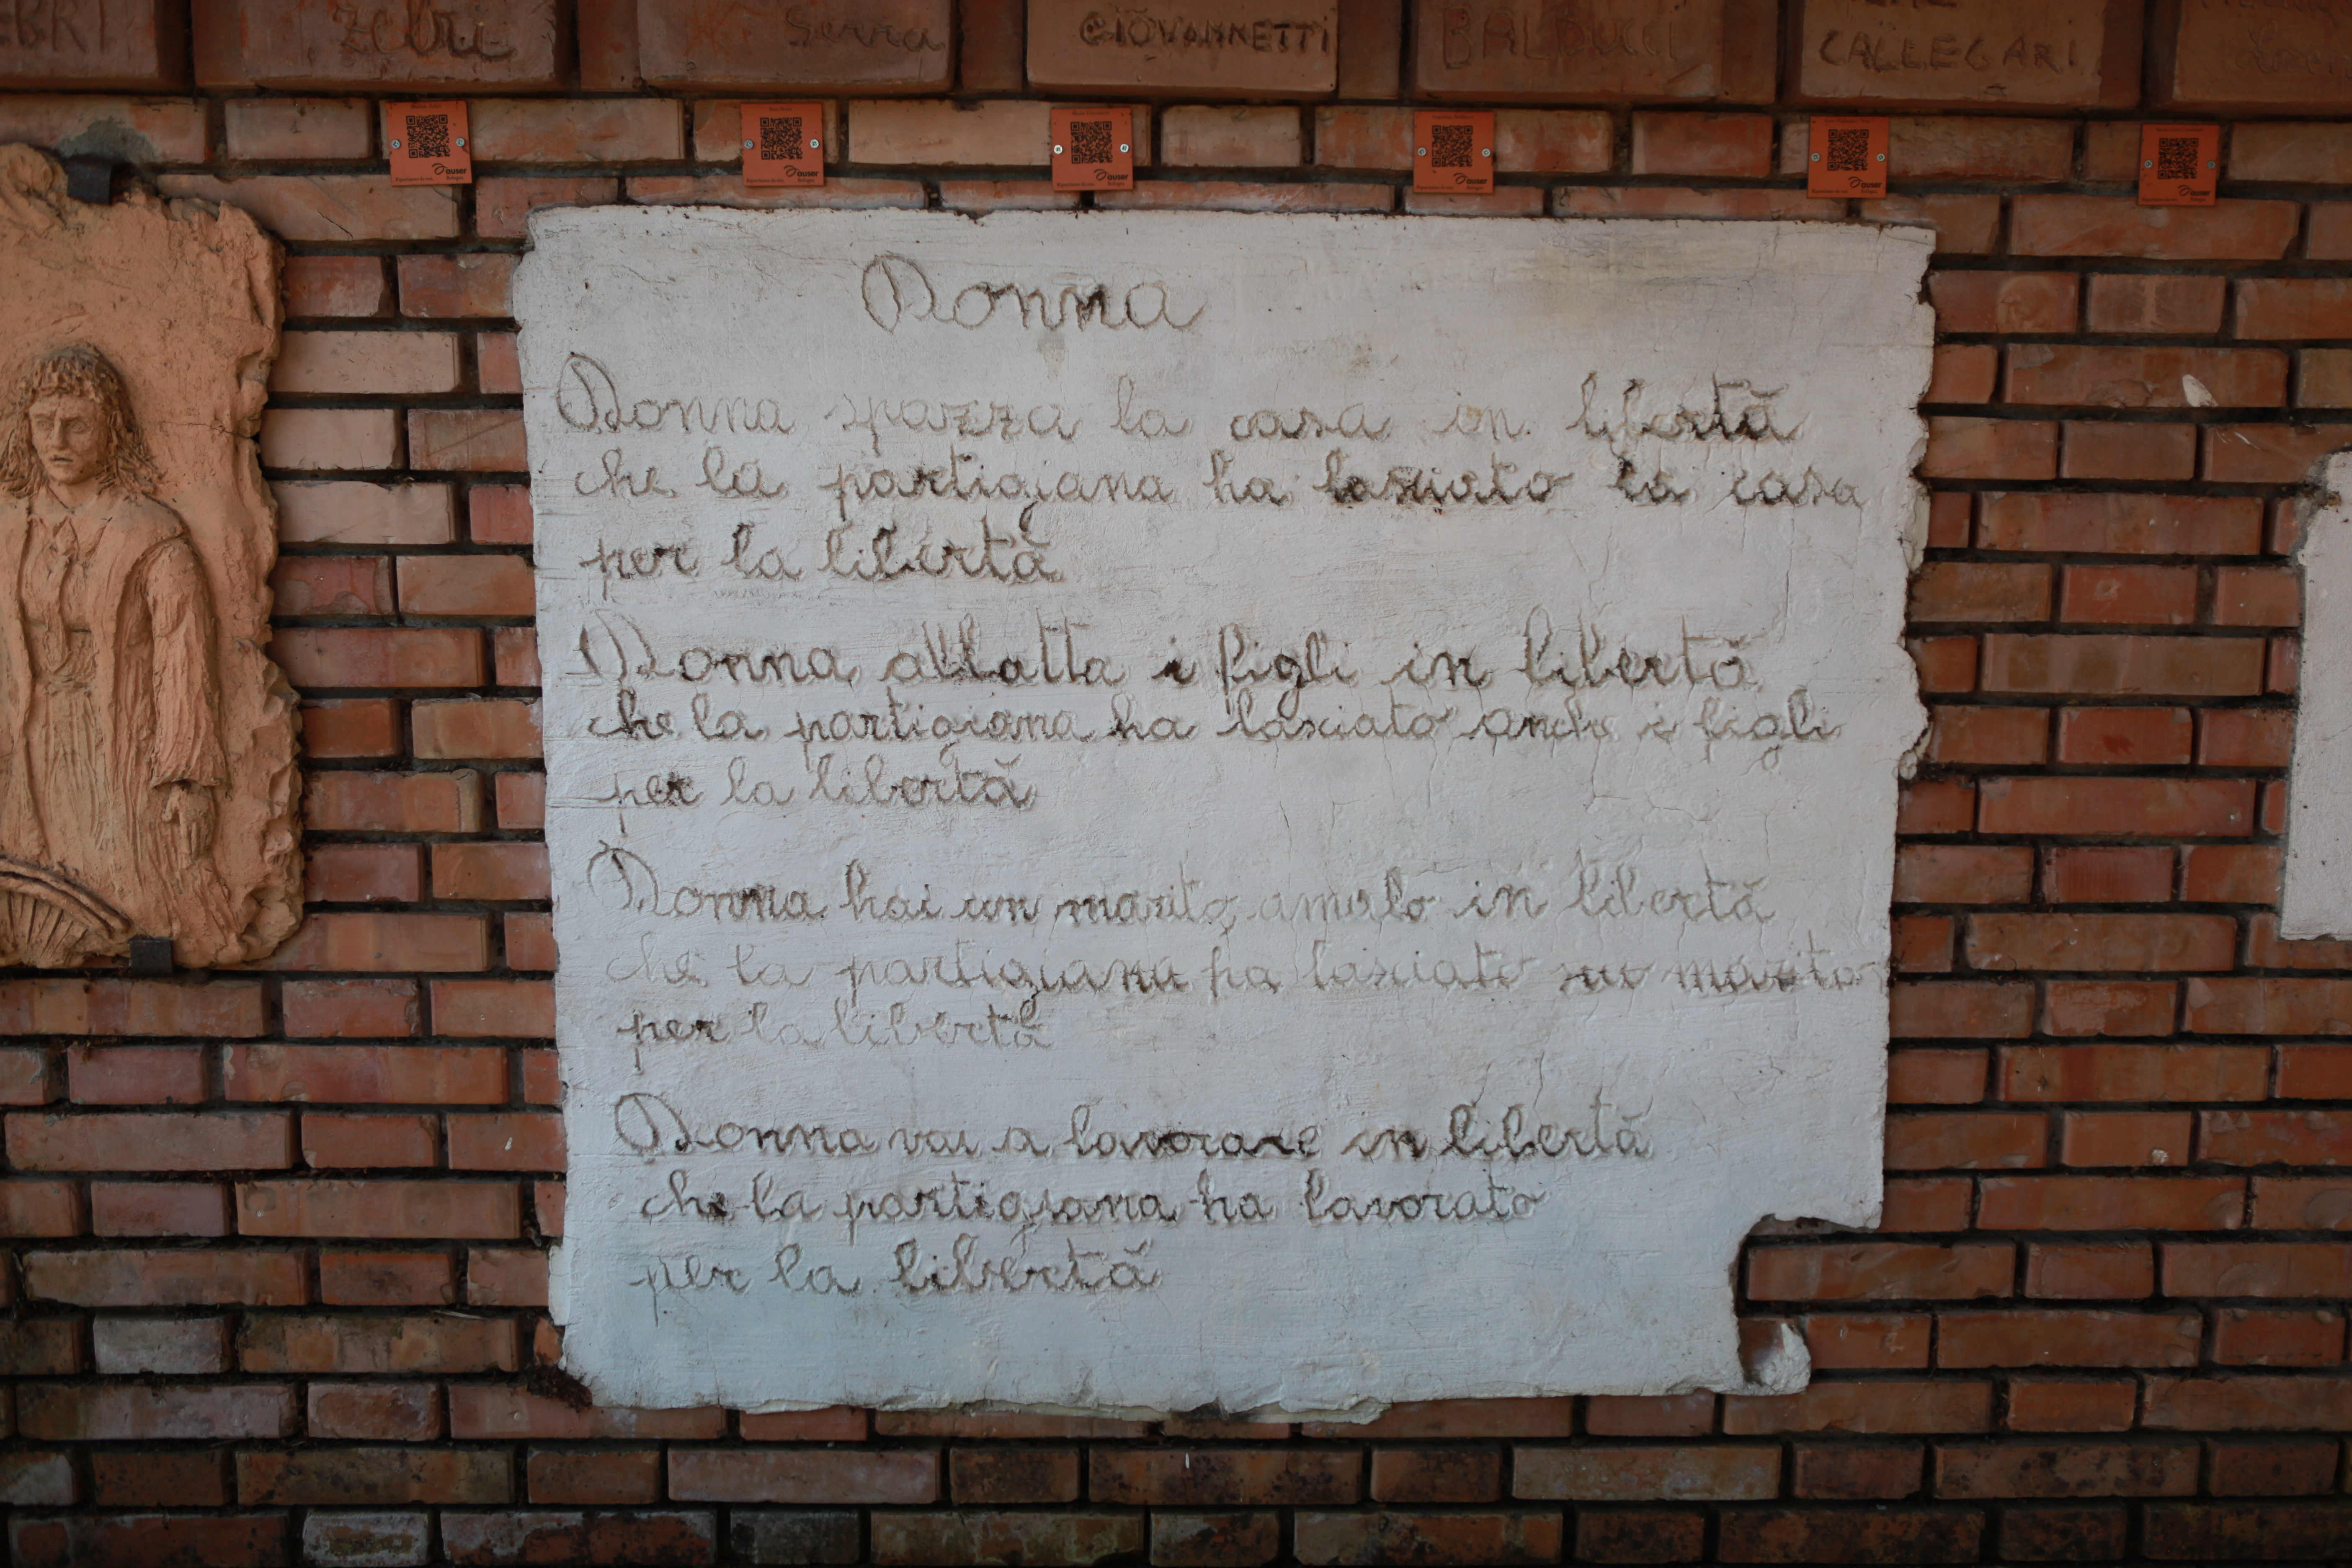 Zebri
Serra
GIOVANNETTI
BALDUCCI
CALLEGARI
auser
auser
auser
auser
auser
auser
Donna
Donna spazza la casa in libertà
che la partigiana ha lasciato la casa
per la libertà
Donna allatta i figli in libertà
che la partigiana ha lasciato anche i figli
per la libertà
Donna hai un marito amalo in libertà
che la partigiana ha lasciato suo marito
per la libertà
Donna vai a lavorare in libertà
che la partigiana ha lavorato
per la libertà